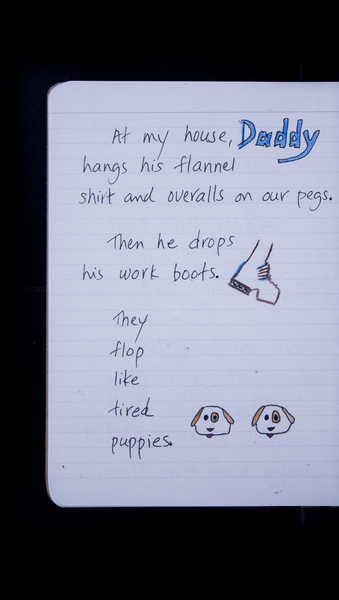 At my house, Daddy
hangs his flannel
shirt and overalls on our pegs.
Then he drops
his work boots.
They
flop
like
tired
puppies.